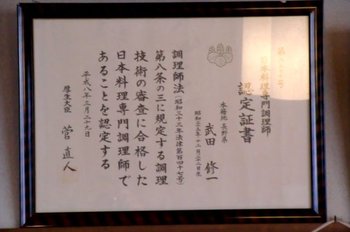 日本料理専門調理師
認定証書
本籍地 長野県
武田修一
調理師法(昭和三十三年法律第百四十七号)
第八条の三に規定する調理
技術の審査に合格した
日本料理専門調理師で
あることを認定する
平成八年三月二十九日
厚生大臣 菅直人